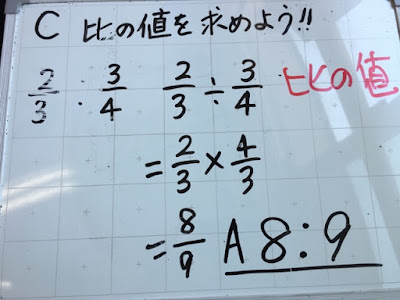 C 比の値を求めよう!!
2/3 : 3/4 2/3 ÷ 3/4 比の値
= 2/3 × 4/3
= 8/9 A 8:9